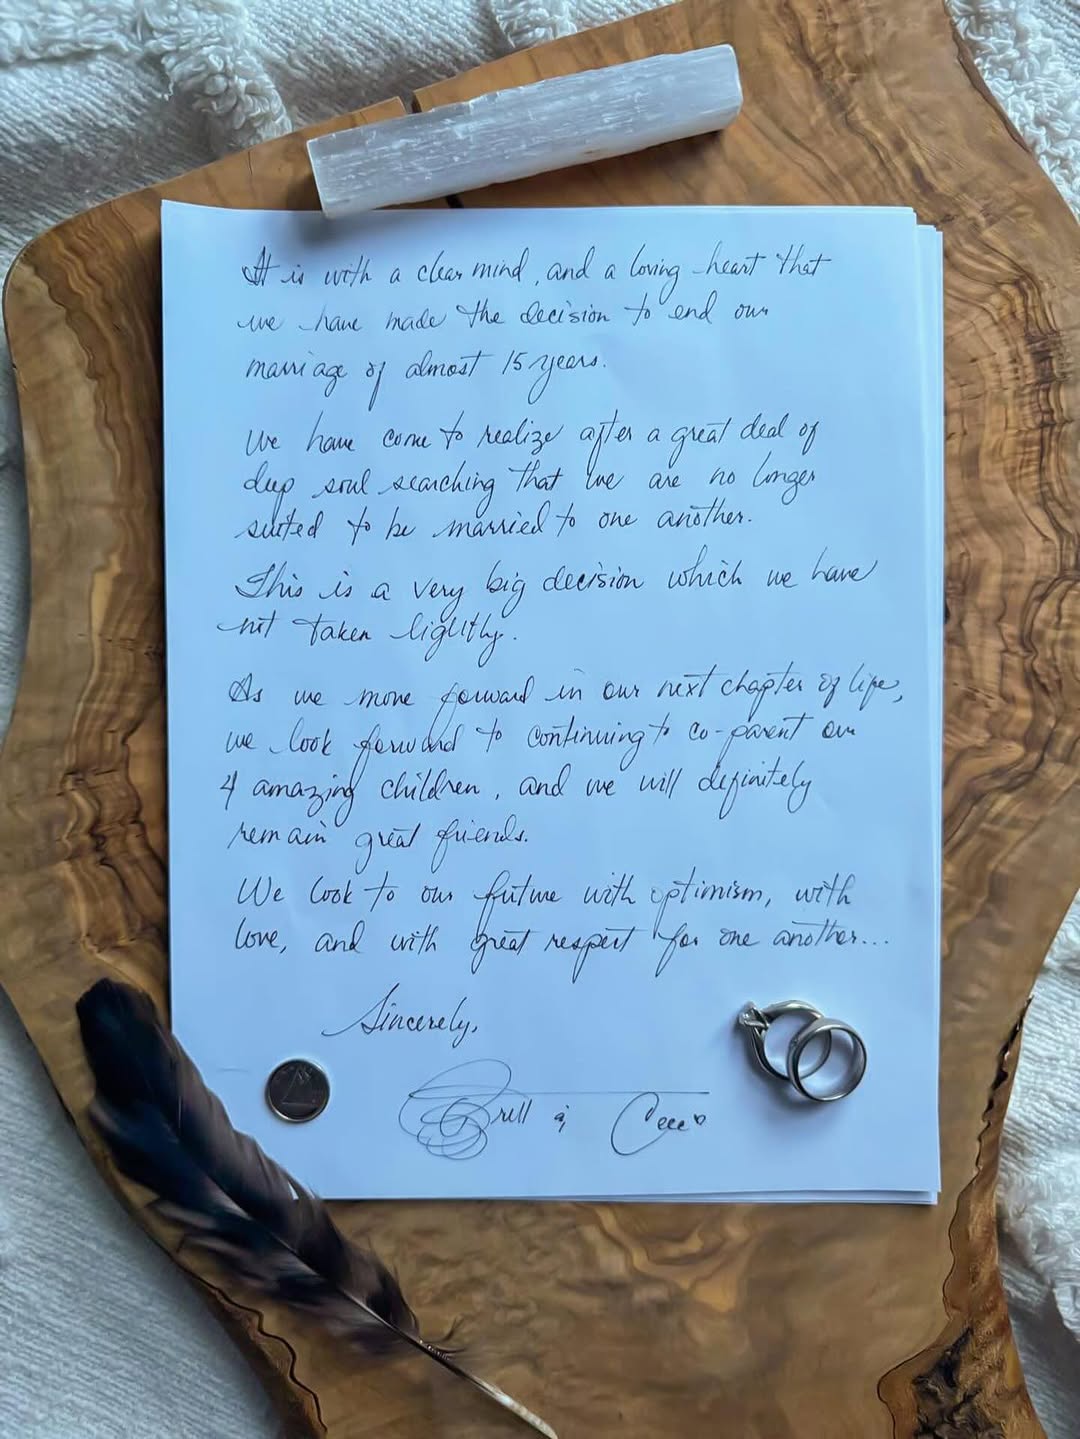 It is with a clear mind, and a loving heart that
we have made the decision to end our
marriage of almost 15 years.
We have come to realize after a great deal of
deep soul searching that we are no longer
suited to be married to one another.
This is a very big decision which we have
not taken lightly.
As we move forward in our next chapter of life,
we look forward to continuing to co-parent our
4 amazing children, and we will definitely
remain great friends.
We look to our future with optimism, with
love, and with great respect for one another...
Sincerely,
&